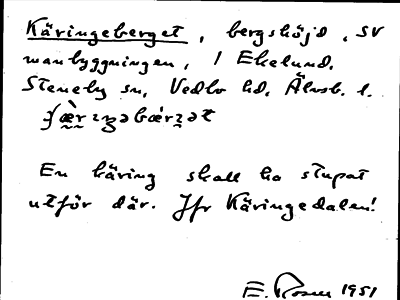 Käringeberget, bergshöjd, SV
manbyggningen, 1 Ekelund,
Steneby sn, Vedbo hd, Älvsb. l.
En käring skall ha stupat
utför där. Jfr Käringedalen!
E. Rosen 1951